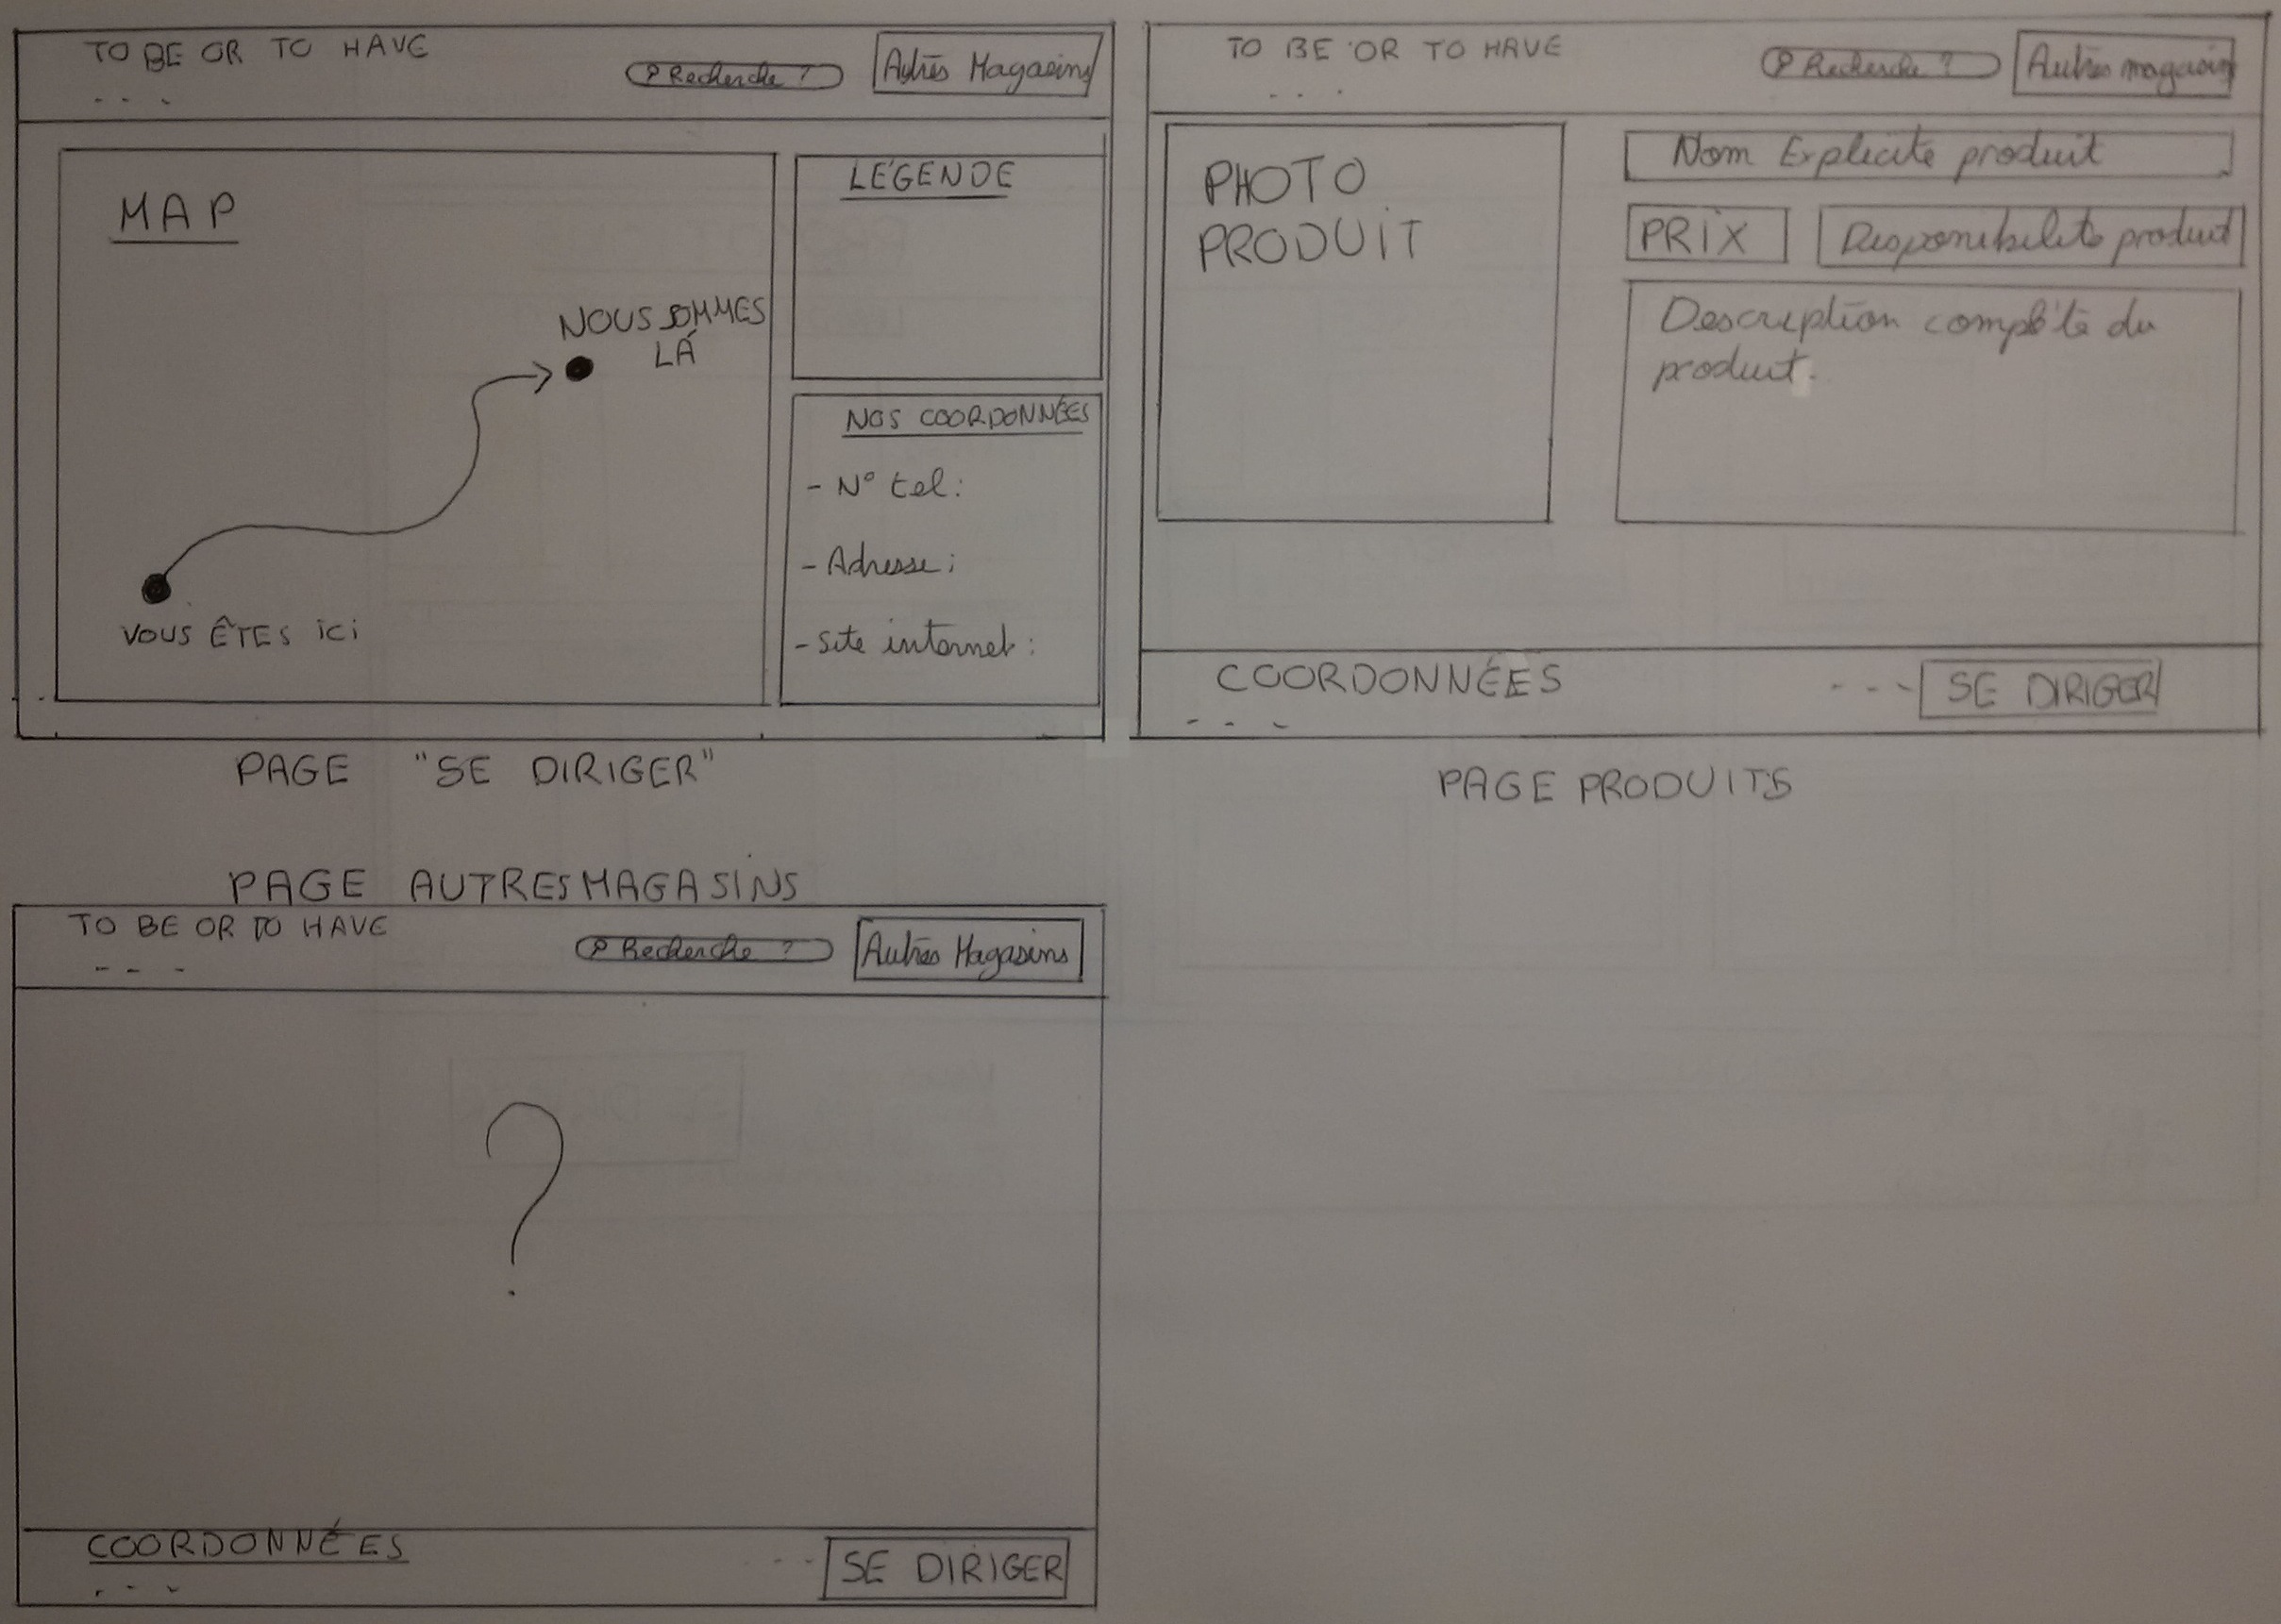 TO BE OR TO HAVE
Recherche ?
Autres Magasins
- - -
MAP
NOUS SOMMES
LÀ
VOUS ÊTES ici
LÉGENDE
NOS COORDONNÉES
- N° tel:
- Adresse:
- Site internet:
PAGE "SE DIRIGER"
TO BE OR TO HAVE
Recherche ?
Autres magasin
- - -
PHOTO
PRODUIT
Nom Explicite produit
PRiX
Disponibilité produit
Description complète du
produit.
COORDONNÉES
- - -
- - -
SE DIRIGER
PAGE PRODUITS
PAGE AUTRES MAGASINS
TO BE OR TO HAVE
Recherche ?
Autres Magasins
- - -
?
COORDONNÉES
- - -
- - -
SE DIRIGER